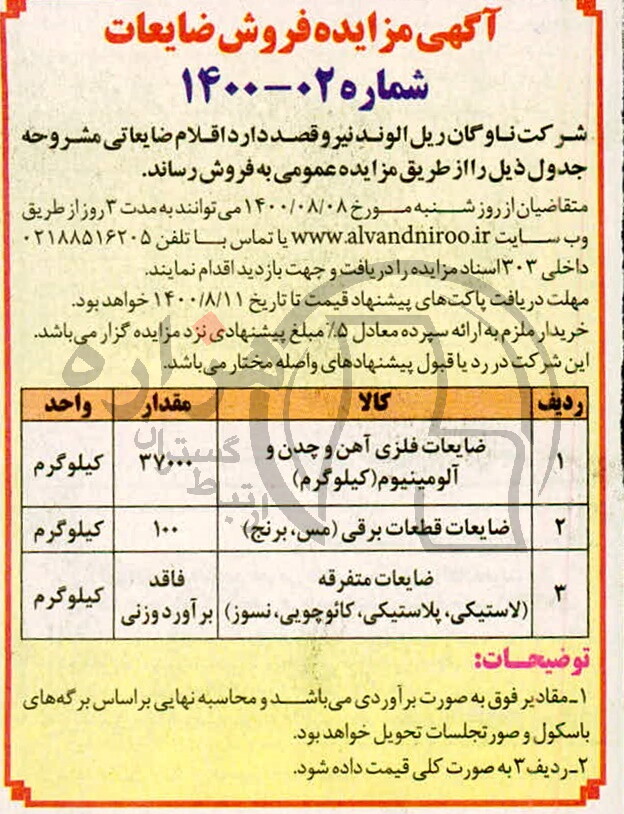 آگهی مزایده فروش ضایعات
شماره ۰۲-۱۴۰۰
شرکت ناوگان ریل الوند نیرو قصد دارد اقلام ضایعاتی مشروحه
جدول ذیل را از طریق مزایده عمومی به فروش رساند.
متقاضیان از روز شنبه مورخ ۱۴۰۰/۰۸/۰۸ می‌توانند به مدت ۳ روز از طریق
وب سایت www.alvandniroo.ir یا تماس با تلفن ۰۲۱۸۸۵۱۶۲۰۵
داخلی ۳۰۳ اسناد مزایده را دریافت و جهت بازدید اقدام نمایند.
مهلت دریافت پاکت‌های پیشنهاد قیمت تا تاریخ ۱۴۰۰/۸/۱۱ خواهد بود.
خریدار ملزم به ارائه سپرده معادل ۵٪ مبلغ پیشنهادی نزد مزایده گزار می‌باشد.
این شرکت در رد یا قبول پیشنهادهای واصله مختار می‌باشد.
ردیف کالا مقدار واحد
۱ ضایعات فلزی آهن و چدن و آلومینیوم (کیلوگرم) ۳۷۰۰۰ کیلوگرم
۲ ضایعات قطعات برقی (مس، برنج) ۱۰۰ کیلوگرم
۳ ضایعات متفرقه (لاستیکی، پلاستیکی، کائوچویی، نسوز) فاقد برآورد وزنی کیلوگرم
توضیحات:
۱ـ مقادیر فوق به صورت برآوردی می‌باشد و محاسبه نهایی براساس برگه‌های
باسکول و صورتجلسات تحویل خواهد بود.
۲ـ ردیف ۳ به صورت کلی قیمت داده شود.
هزاره
گسترش
ارتباط